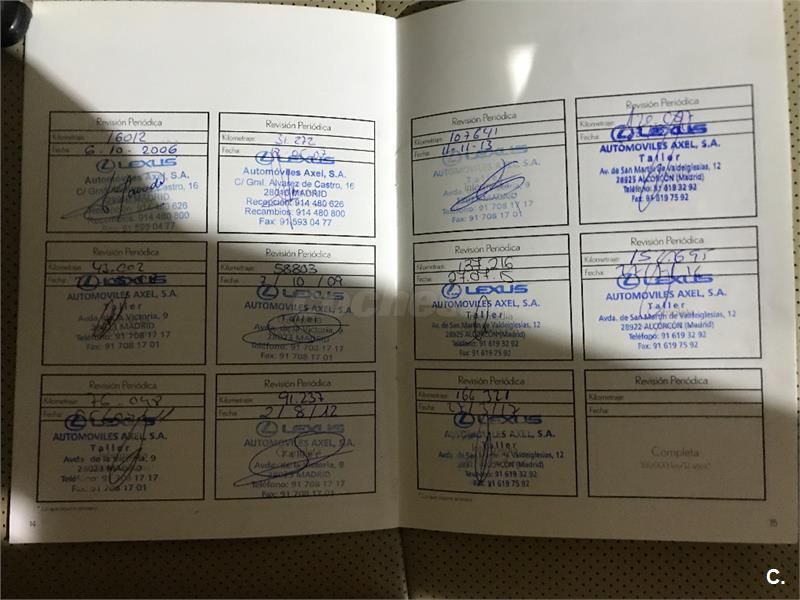 Revisión Periódica
Kilometraje: 16012
Fecha: 6-10-2006
LEXUS
Automóviles Axel, S.A.
C/ Gral. Castro, 16
MADRID
Recepción: 914 480 626
Recambios: 914 480 800
Fax: 91 593 04 77
Revisión Periódica
Kilometraje: 31.272
Fecha:
LEXUS
Automóviles Axel, S.A.
C/ Gral. Alvarez de Castro, 16
28010 MADRID
Recepción: 914 480 626
Recambios: 914 480 800
Fax: 91 593 04 77
Revisión Periódica
Kilometraje:
Fecha:
LEXUS
AUTOMOVILES AXEL, S.A.
Taller
Avda. de la Victoria, 9
28023 MADRID
Teléfono: 91 708 17 17
Fax: 91 708 17 01
Revisión Periódica
Kilometraje: 58803
Fecha: 2/10/09
LEXUS
AUTOMOVILES AXEL, S.A.
Taller
Avda. de la Victoria, 9
28023 MADRID
Teléfono: 91 708 17 17
Fax: 91 708 17 01
Revisión Periódica
Kilometraje: 76.048
Fecha:
LEXUS
AUTOMOVILES AXEL, S.A.
Taller
Avda. de la Victoria, 9
28023 MADRID
Teléfono: 91 708 17 17
Fax: 91 708 17 01
Revisión Periódica
Kilometraje: 91.237
Fecha: 2/8/12
LEXUS
AUTOMOVILES AXEL, S.A.
Avda. de la Victoria, 9
28023 MADRID
Teléfono: 91 708 17 17
Fax: 91 708 17 01
14
Revisión Periódica
Kilometraje: 107641
Fecha: 11-13
LEXUS
AUTOMOVILES AXEL, S.A.
MADRID
Teléfono: 91 708 17 17
Fax: 91 708 17 01
Revisión Periódica
Kilometraje:
Fecha:
LEXUS
AUTOMOVILES AXEL, S.A.
Taller
Av. de San Martín de Valdeiglesias, 12
28925 ALCORCÓN (Madrid)
Teléfono: 91 619 32 92
Fax: 91 619 75 92
Revisión Periódica
Kilometraje: 137.216
Fecha:
LEXUS
AUTOMOVILES AXEL, S.A.
Taller
Av. de San Martín de Valdeiglesias, 12
28925 ALCORCÓN (Madrid)
Teléfono: 91 619 32 92
Fax: 91 619 75 92
Revisión Periódica
Kilometraje:
Fecha:
LEXUS
AUTOMOVILES AXEL, S.A.
Taller
Avda. de San Martín de Valdeiglesias, 12
28922 ALCORCÓN (Madrid)
Teléfono: 91 619 32 92
Fax: 91 619 75 92
Revisión Periódica
Kilometraje: 166.321
Fecha:
LEXUS
AUTOMOVILES AXEL, S.A.
Taller
Av. de San Martín de Valdeiglesias, 12
28925 ALCORCÓN (Madrid)
Teléfono: 91 619 32 92
Fax: 91 619 75 92
Revisión Periódica
Kilometraje:
Fecha:
Completa
15
C.